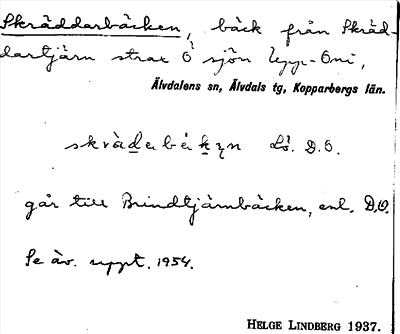 Skräddarbäcken, bäck från Skräd-
dartjärn strax Ö sjön Upp-Oni,
Älvdalens sn, Älvdals tg, Kopparbergs län.
Lå. D.O.
går till Brindtjärnbäcken, enl. D.O.
Se äv. uppt. 1954.
HELGE LINDBERG 1937.